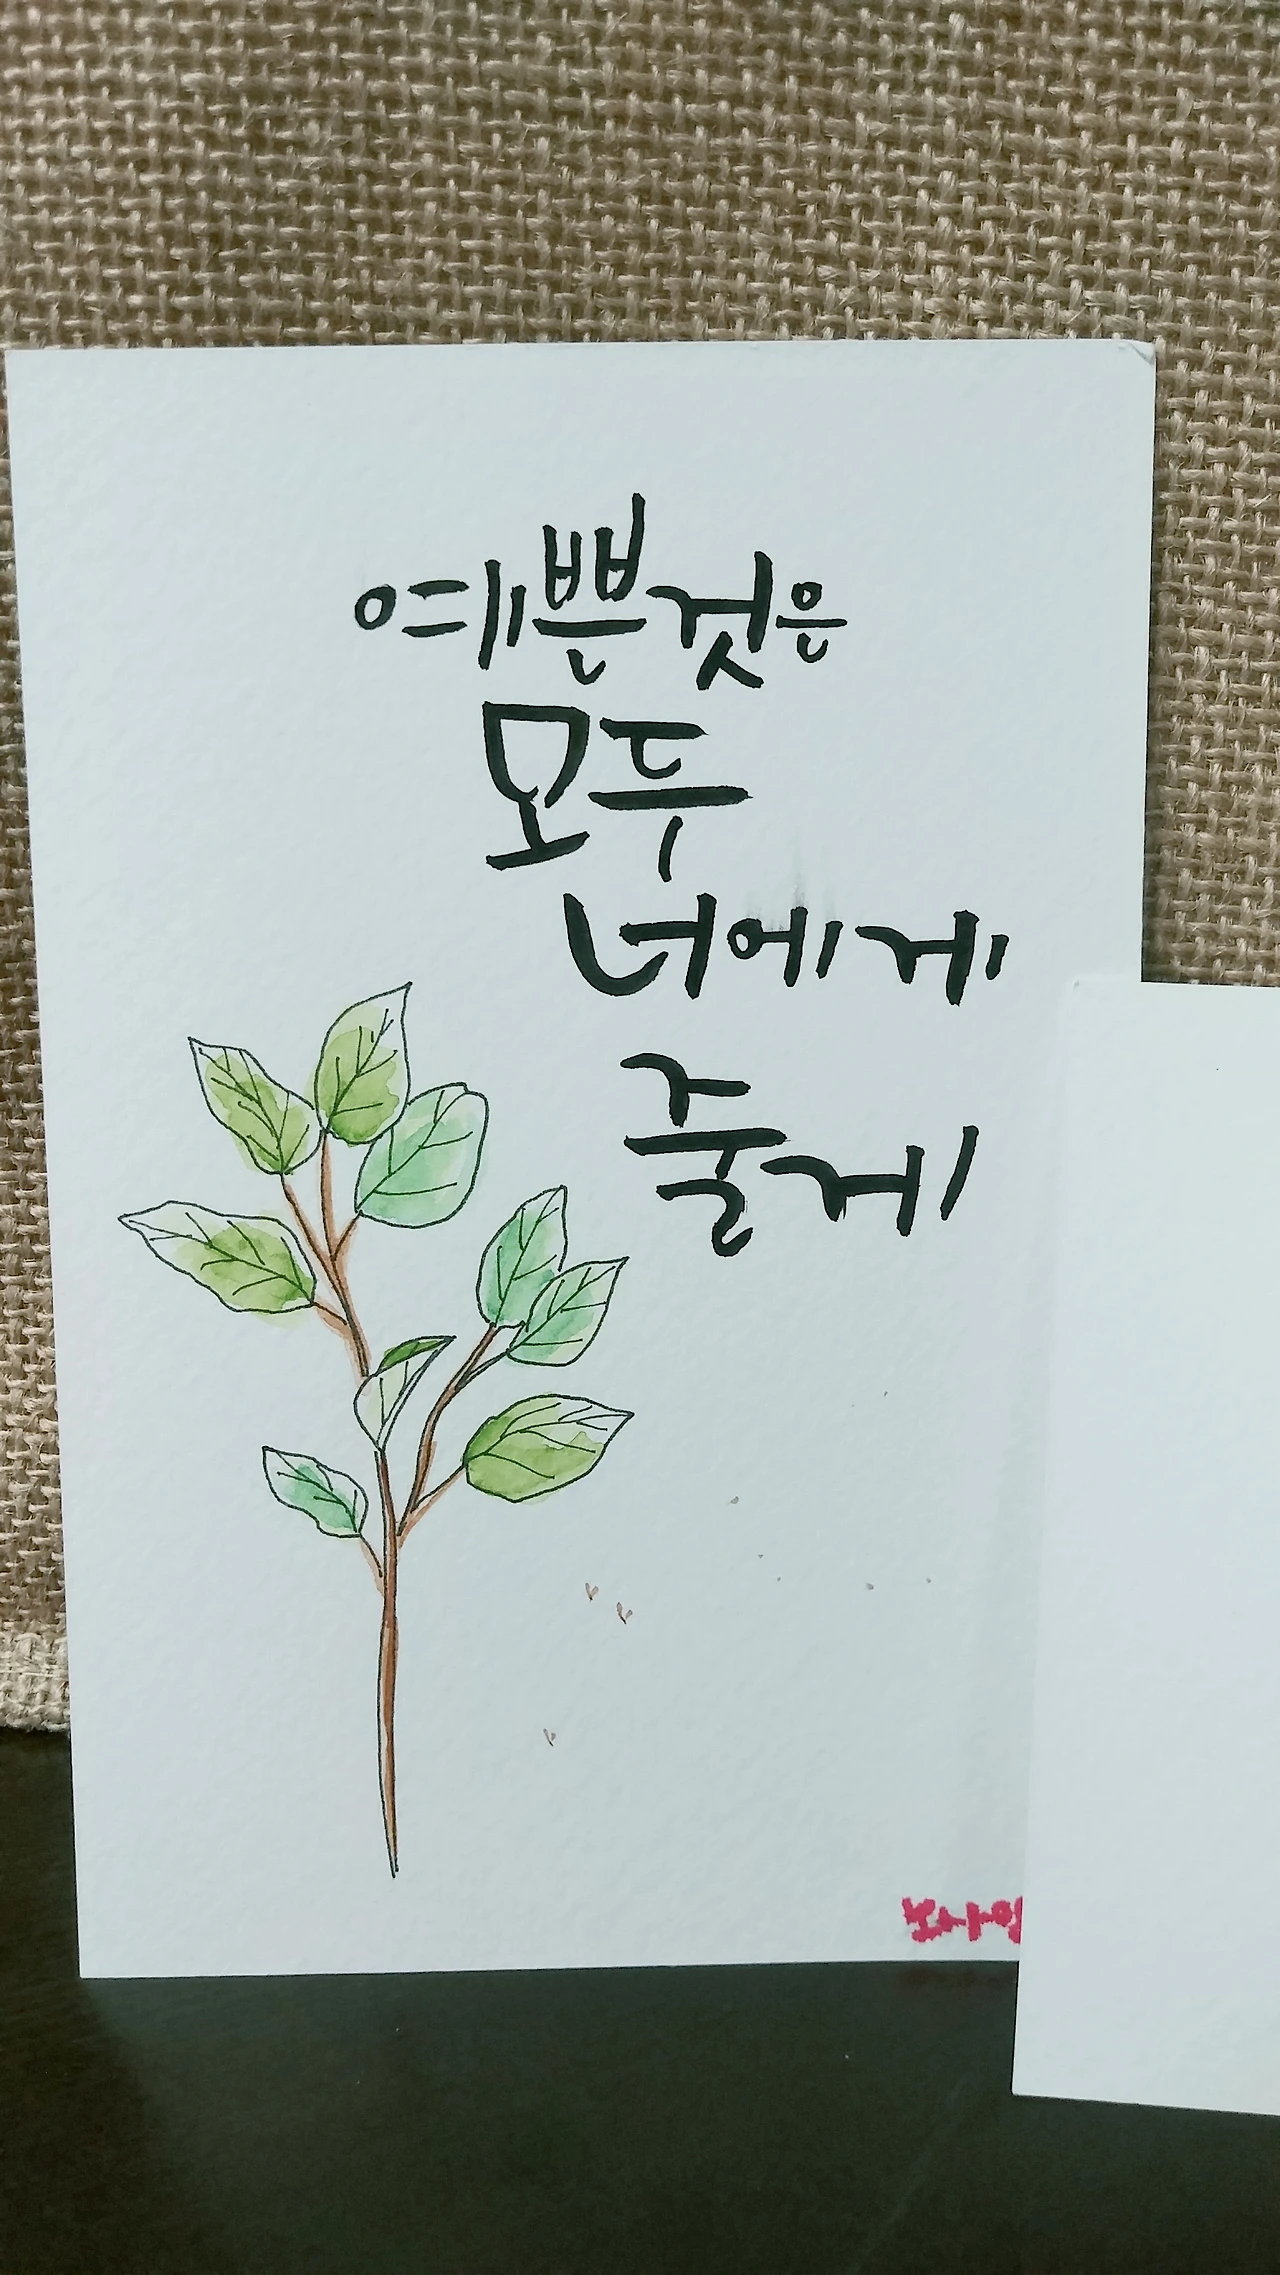 예쁜것은
모두
너에게
줄게